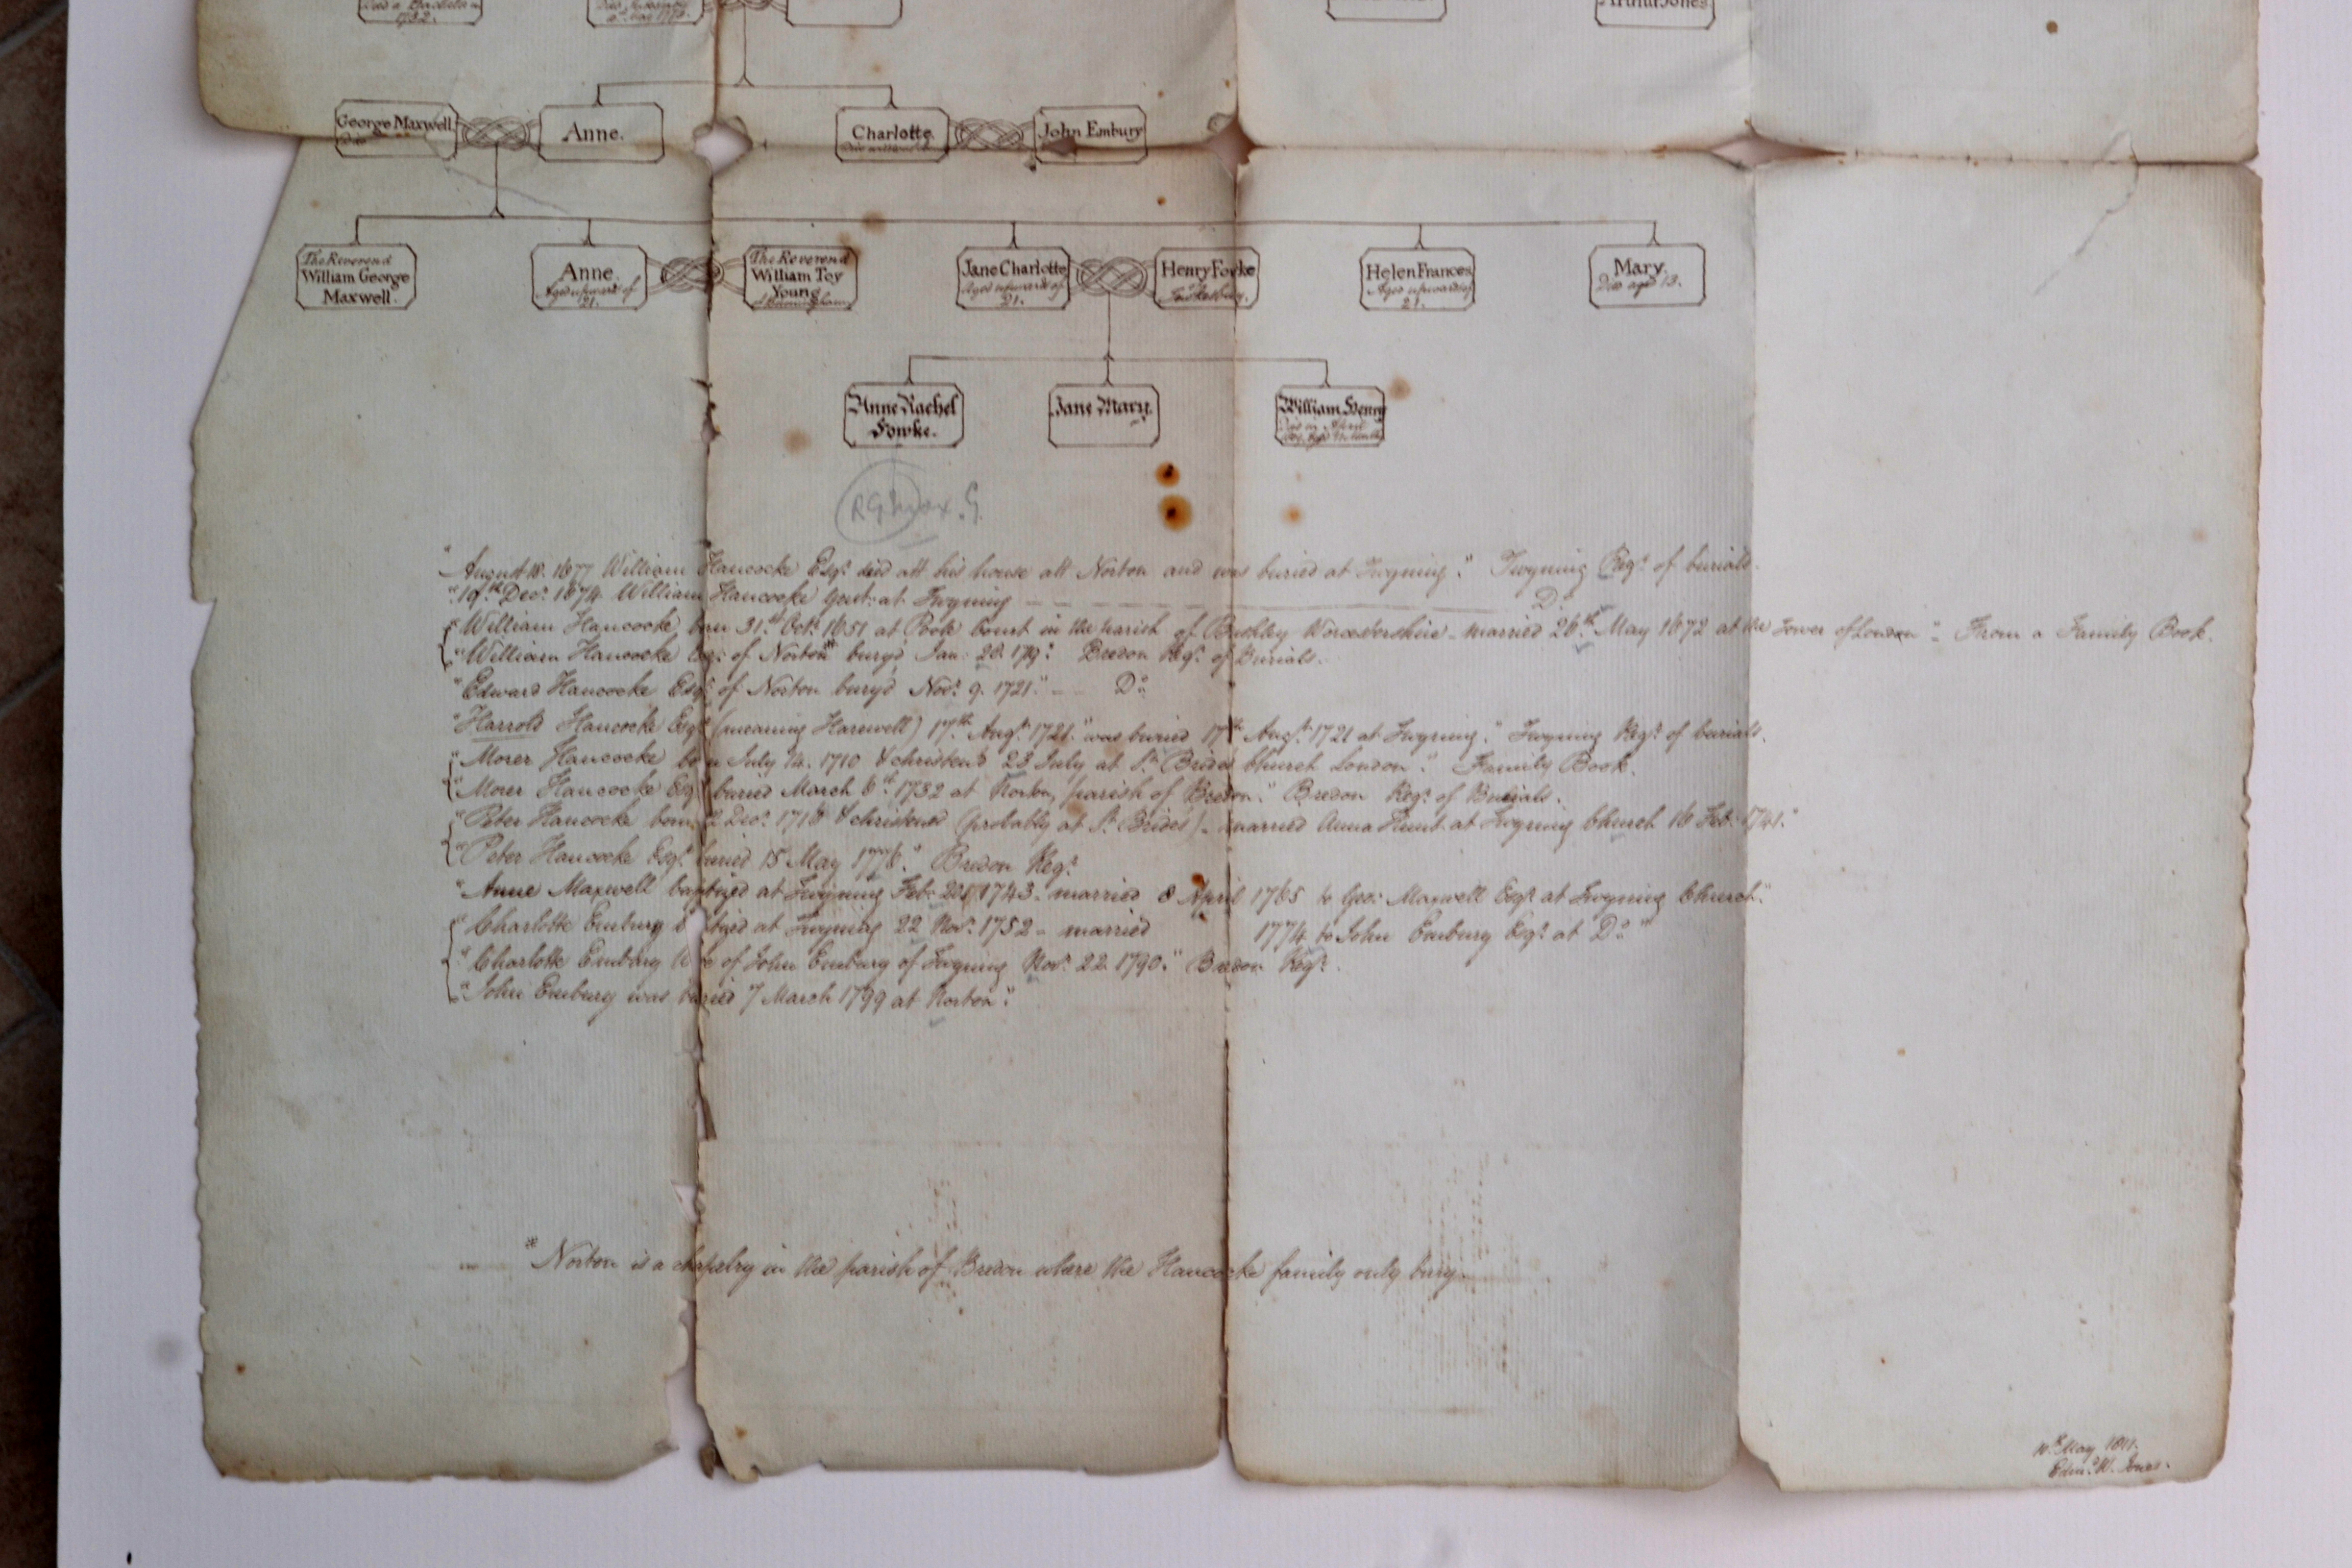 Died a Bachelor in
1732.
Arthur Jones
George Maxwell.
Died
Anne.
Charlotte.
John Embury
The Reverend
William George
Maxwell.
Anne.
Aged upwards of
21.
The Reverend
William Toy
Young
of Birmingham
Jane Charlotte
Aged upwards of
21.
Henry Fowke
of
Tewkesbury.
Helen Frances
Aged upwards of
21.
Mary.
Died aged 13.
Anne Rachel
Fowke.
Jane Mary.
William Henry
Died in April
"August 18. 1677 William Hancocke Esqr. died att his house att Norton and was buried at Twyning." Twyning Regr. of burials.
"19.th Decr. 1674 William Hancocke Gent: at Twyning — — — Do.
"William Hancocke born 31.st Octr. 1651 at Pool Court in the parish of Bushley Worcestershire - married 26.th May 1672 at the Tower of London". From a Family Book.
"William Hancocke Esqr: of Norton* bury'd Jan: 20. Bredon Regr. of Burials.
"Edward Hancocke Esqr. of Norton bury'd Novr. 9. 1721." — Do.
"Harrold Hancocke Esqr. (meaning Harewell) 17.th Augt. 1721." was buried 17th Augt. 1721 at Twyning." Twyning Regr. of burials.
"Morer Hancocke born July 14. 1710 & christen'd 23 July at St. Brides Church London". Family Book.
"Morer Hancocke Esqr. buried March 6th. 1732 at Norton, parish of Bredon." Bredon Regr. of Burials.
"Peter Hancocke born 2 Decr. 1716 & christened (probably at St. Brides) - married Anna Hunt at Twyning Church 16 Feb: 1741."
"Peter Hancocke Esqr. buried 15 May 1776." Bredon Regr.
"Anne Maxwell baptized at Twyning Feb: 1743. married 8 April 1765 to Geo: Maxwell Esqr. at Twyning Church."
"Charlotte Embury baptized at Twyning 22 Novr. 1752 - married 1774 to John Embury Esqr. at Do."
"Charlotte Embury Wife of John Embury of Twyning Novr. 22. 1790." Bredon Regr.
"John Embury was buried 7 March 1799 at Norton".
* Norton is a chapelry in the parish of Bredon where the Hancocke family only bury.
10th May 1811.
Edmd. W. Jones.